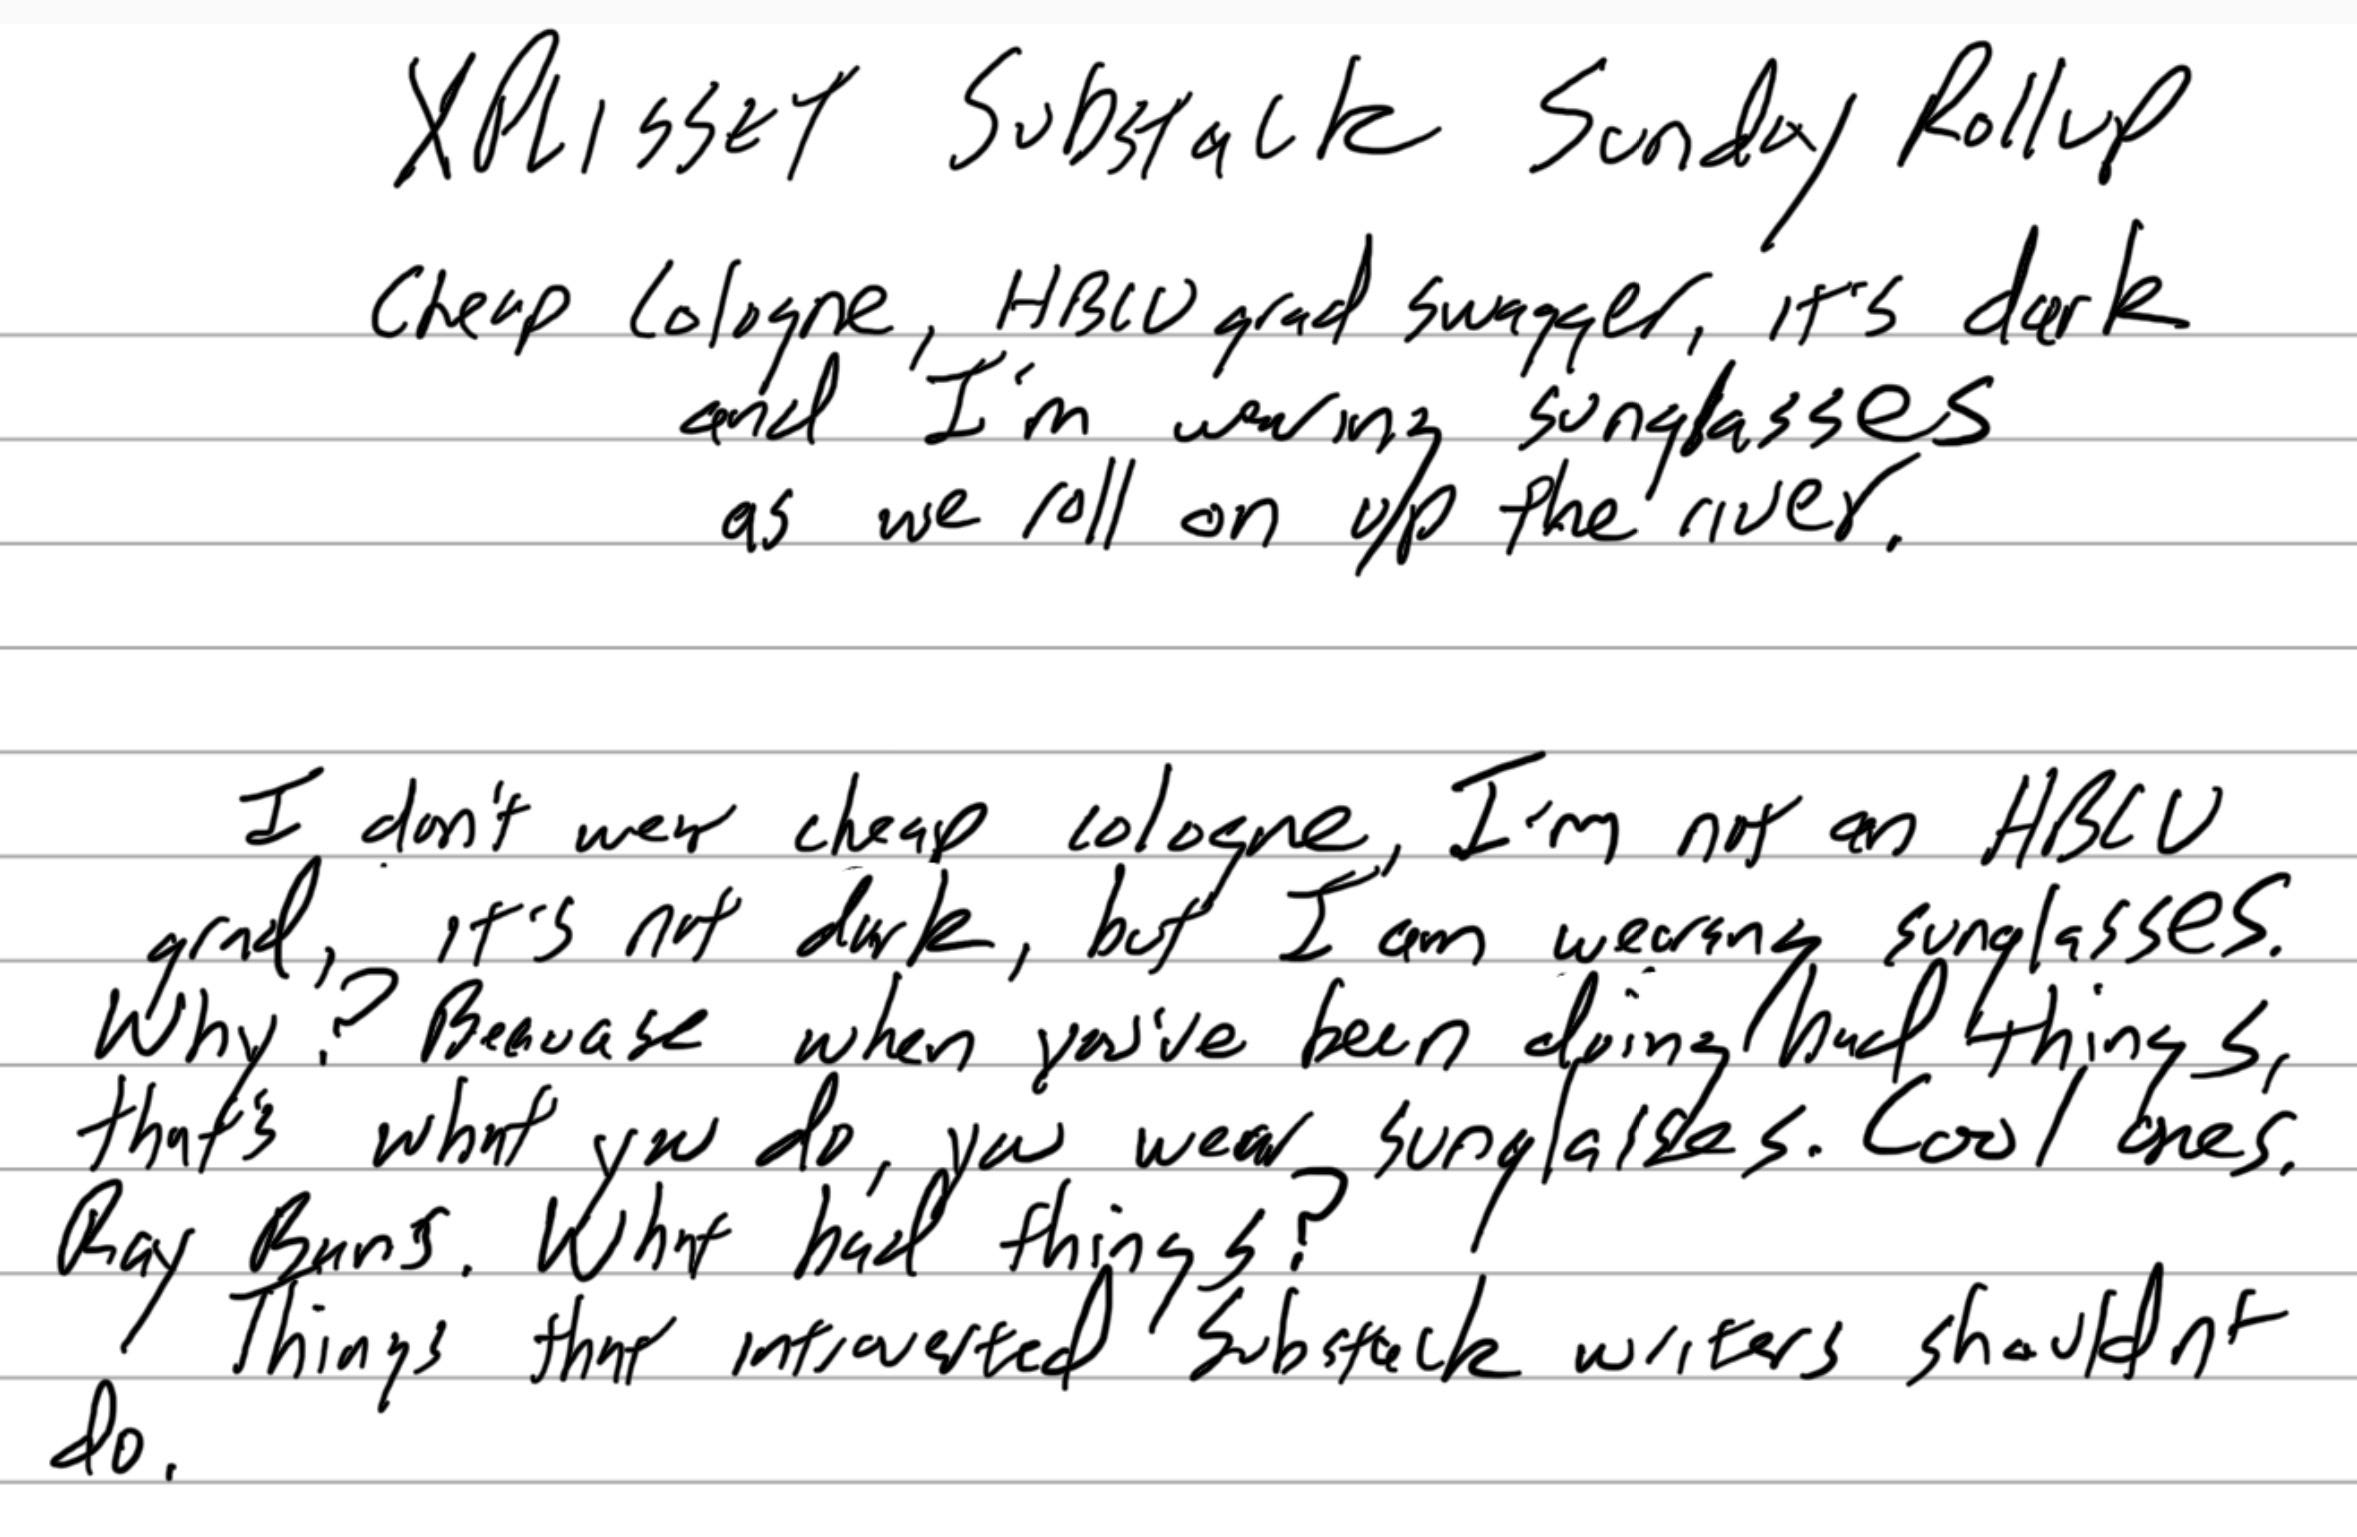 XPLISSET Substack Sunday Rollup
Cheap Cologne, HBCU grad swagger, it's dark
and I'm wearing sunglasses
as we roll on up the river.
I don't wear cheap cologne, I'm not an HBCU
grad, it's not dark, but I am wearing sunglasses.
Why? Beacause when you've been doing bad things,
that's what you do, you wear sunglasses. Cool ones.
Ray Bans. What bad things?
Things that introverted Substack writers shouldn't
do.